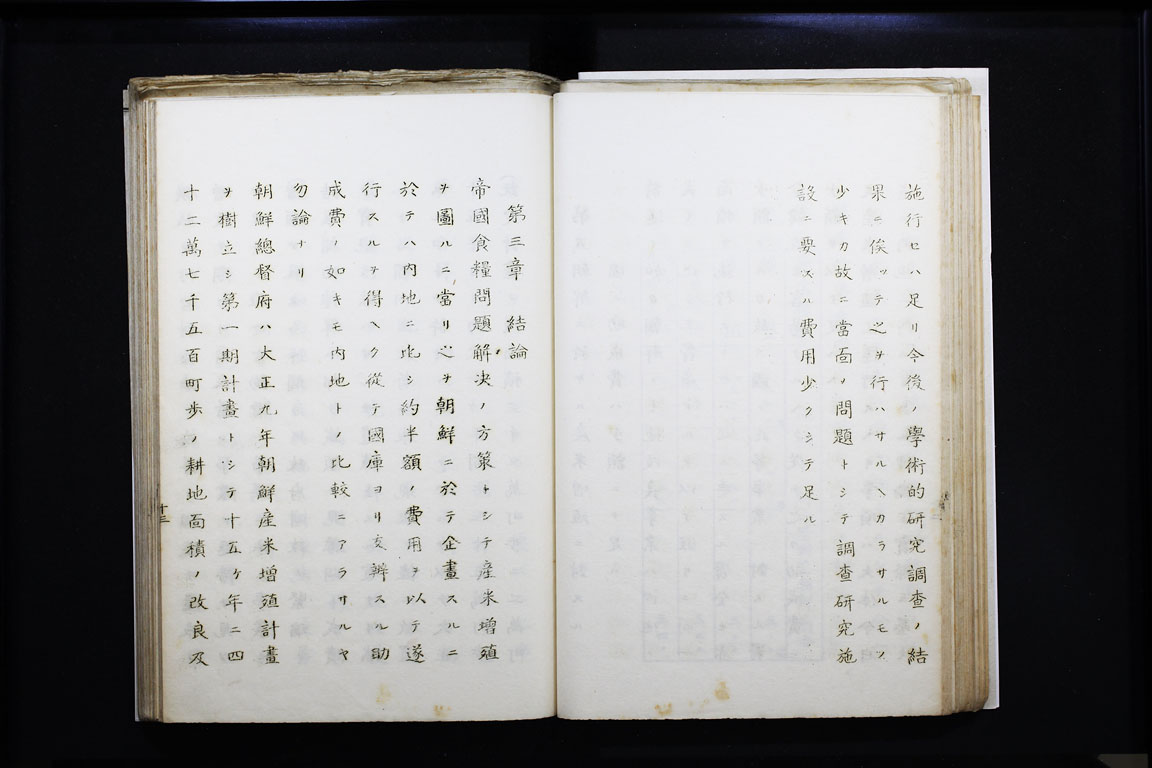 施行セハ足リ今後ノ學術的研究調査ノ結
果ニ俟ツテ之ヲ行ハサルヘカラサルモノ
少キカ故ニ當面ノ問題トシテ調査研究施
設ニ要スル費用少クシテ足ル
第三章 結論
帝國食糧問題解決ノ方策トシテ産米増殖
ヲ圖ルニ當リ之ヲ朝鮮ニ於テ企畫スルニ
於テハ内地ニ比シ約半額ノ費用ヲ以テ遂
行スルヲ得ヘク從テ國庫ヨリ支辨スル助
成費ノ如キモ内地トノ比較ニアラサルヤ
勿論ナリ
朝鮮總督府ハ大正九年朝鮮産米増殖計畫
ヲ樹立シ第一期計畫トシテ十五ケ年ニ四
十二萬七千五百町歩ノ耕地面積ノ改良及
十三